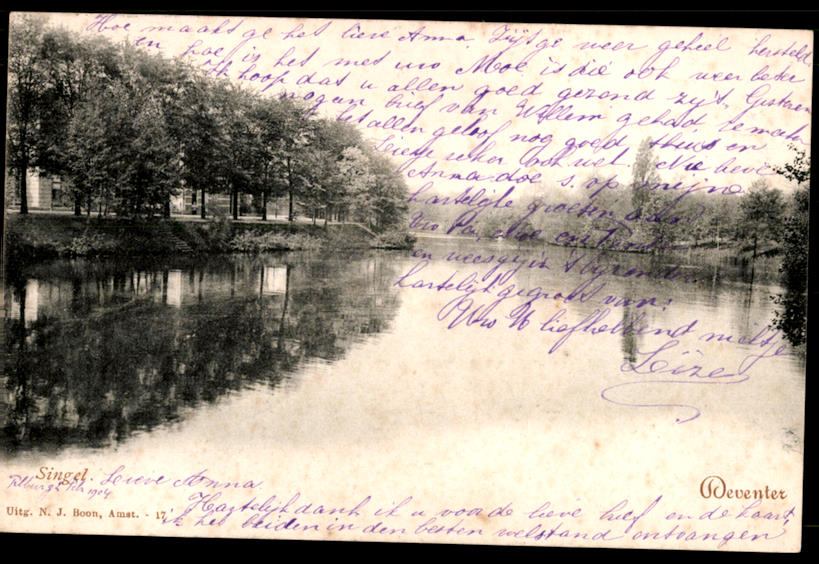 Hoe maakt ge het lieve Anna. Zijt ge weer geheel hersteld
en hoe is het met uw Moe is die ook weer beter
Ik hoop dat u allen goed gezond zijt. Gisteren
nog een brief van Willem gehad maakt
het allen geloof nog goed thuis en
zeker ook wel. Nu lieve
Anna doe s. op mijne
hartelijke groeten aan
Uw Pa, Moe en
en wees gij
hartelijk gegroet van:
Uw U liefhebbend nichtje
Leize
Singel.
Lieve Anna.
Tilburg 2 Feb 1904
Deventer
Hartelijk dank ik u voor de lieve brief en de kaart,
Uitg. N. J. Boon, Amst. - 17.
ik heb beiden in den besten welstand ontvangen